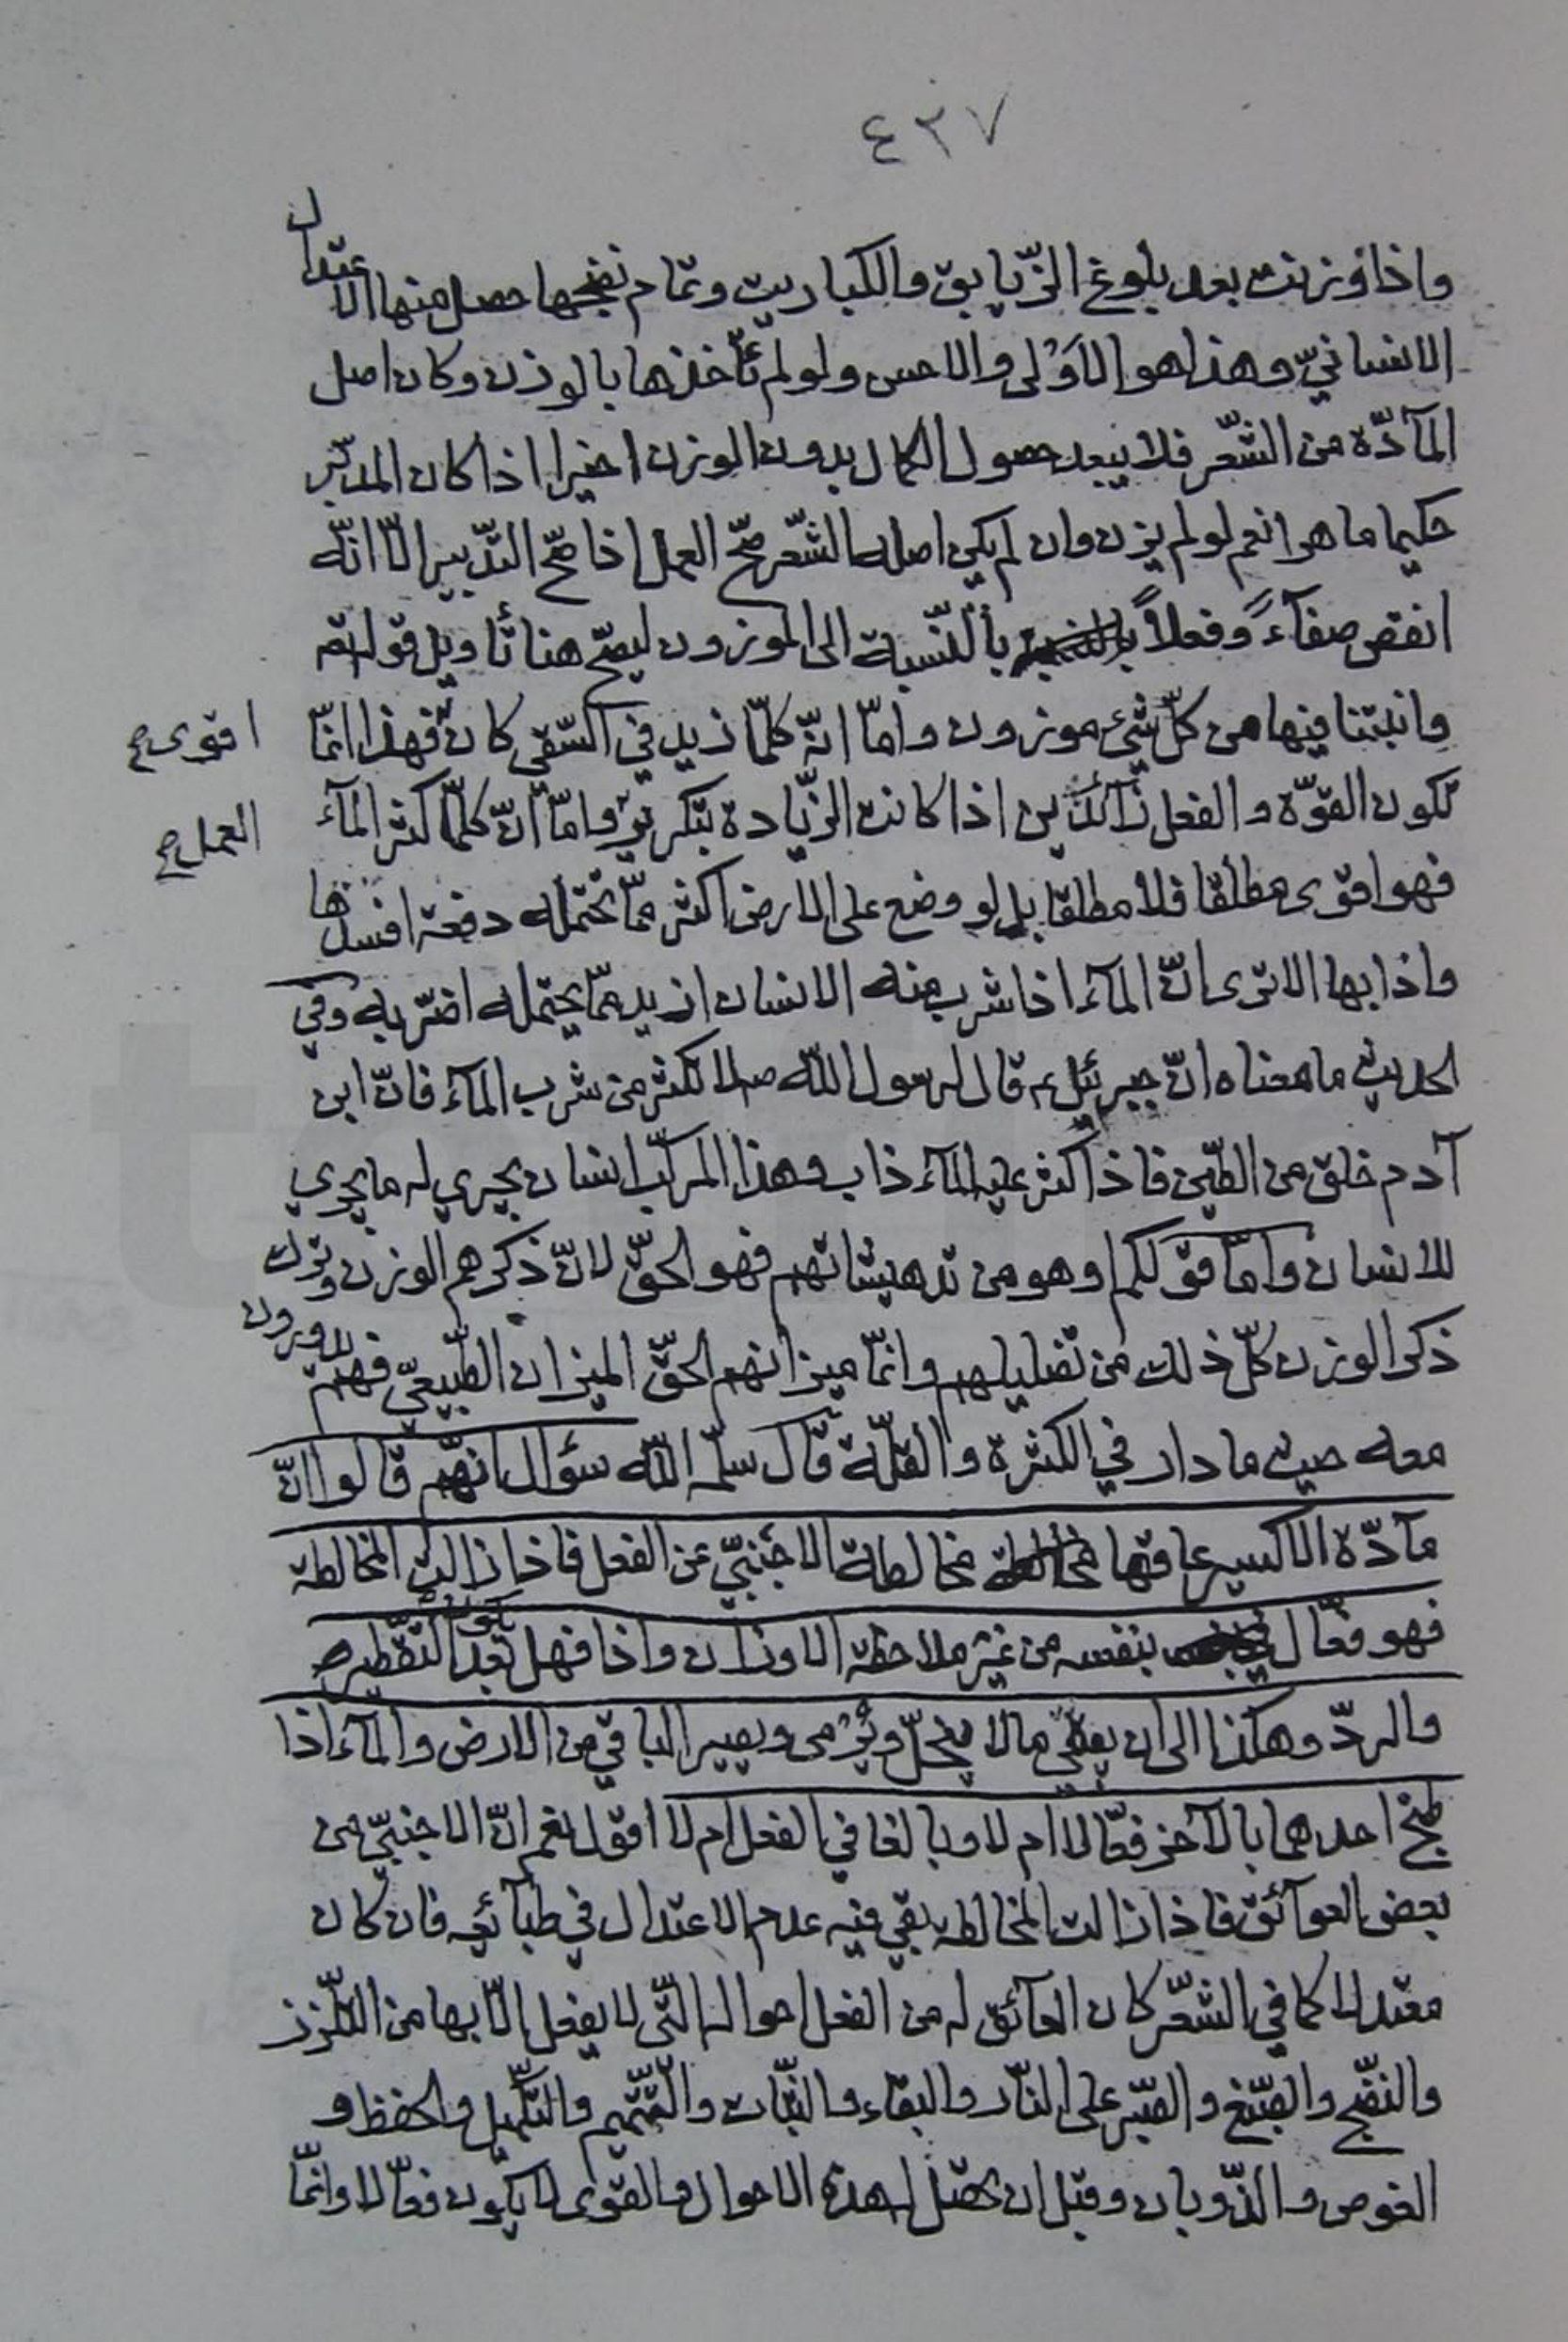 ٤٣٧
واذا وزنت بعد بلوغ الزّيابق والكباريت وتمام نضجها حصل منها الاعتدال
الانسانيّ وهذا هو الاَوْلى والاحسن ولو لم تأخذها بالوزن وكان اصل
المآدّة من الشّعر فلا يبعد حصول الكمال بدون الوزن اخيرا اذا كان المدبّر
حكيما ماهرا نعم لو لم يزن وان لم يكن اصله الشّعر صحّ العمل اذا صحّ التدبير الّا انّه
انقص صفآءً وفعلاً بالنّسبة الى الموزون ليصحّ هنا تأويل قوله تع
وانبتنا فيها من كلّ شئ موزون وامّا انّه كلّما زيد في السّقي كان فهذا انّما
اقوى صح
تكون القوّة والفعل زآئدين اذا كانت الزّيادة بتكرير وامّا انّ كلّما كثر المآء
العمل صح
فهو اقوى مطلقا فلا مطلقا بل لو وضع على الارض اكثر ممّا تحتمله دفعة افسدها
واذابها الا ترى انّ المآء اذا شرب منه الانسان ازيد ممّا يحتمله اضرّ به وفي
الحديث ما معناه انّ جبرئيل ع قال لرسول اللّه ص لا تكثر من شرب المآء فانّ ابن
آدم خلق من الطّين فاذا كثر عليه المآء ذاب وهذا المركّب انسان يجري له ما يجري
للانسان وامّا قولكم او هو من تدهيشاتهم فهو الحقّ لانّ ذكرهم الوزن وترك
ذكر الوزن كلّ ذلك من تضليلهم وانّما ميزانهم الحقّ الميزان الطّبيعيّ فهم يدورون
معه حيث ما دار في الكثرة والقلّة قال سلّمه اللّه سؤال انهّم قالوا انّ
مآدّة الاكسير عاقها مخالطة الاجنبيّ عن الفعل فاذا زالت المخالطة
فهو فعّال بنفسه من غير ملاحظة الاوزان واذا فهل يكون بعد التّقطير
والردّ وهكذا الى ان يبقى ما لا ينحلّ ويُرْمى ويصير الباقي من الارض والمآء اذا
طبخ احدهما بالآخر فعّالا ام لا وبالغا في الفعل ام لا اقول نعم انّ الاجنبيّ من
بعض العوآئق فاذا زالت المخالطه بقي فيه عدم الاعتدال في طبآئعه فان كان
معتدلا كما في الشّعر كان العآئق له من الفعل احواله الّتي لا يفعل الّا بها من التلّزز
والنضّج والصّبغ والصّبر على النّار والبقاء والثّبات والتّتميم والتّكميل والحفظ و
الغوص والذّوبان وقبل ان تحصل له هذه الاحوال والقوى لا يكون فعّالا وانّما